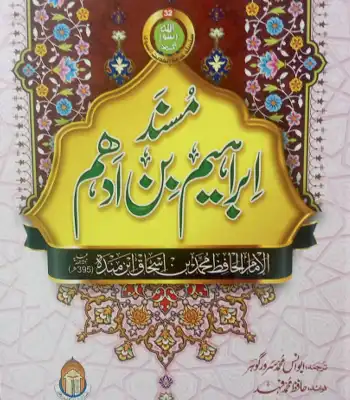 32
مُسند
ابراہیم بن ادھم
الامام الحافظ محمد بن اسحاق ابن مندہ (395ھ)
ترجمہ: ابو انس محمد سرور گوہر
حافظ محمد فہد